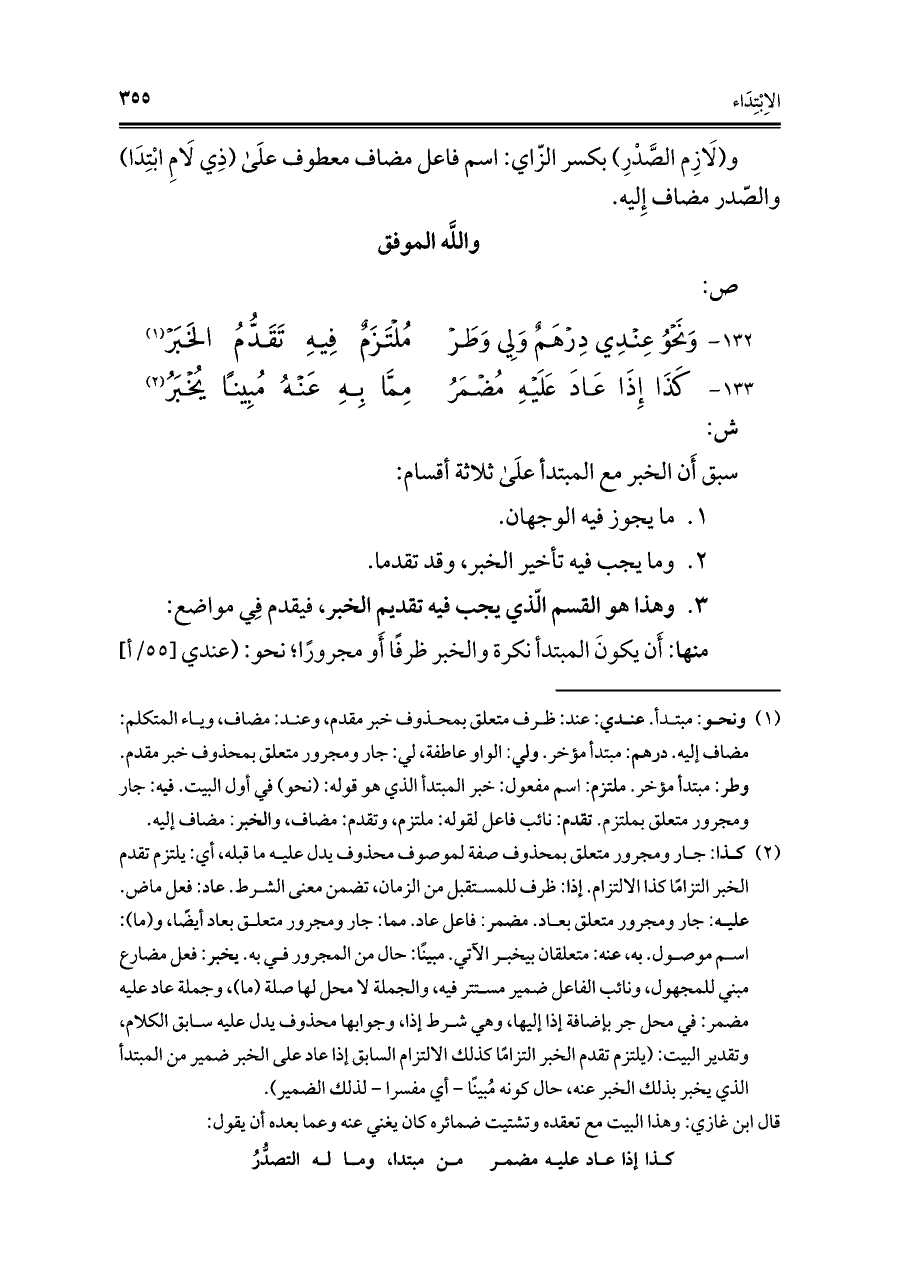 الاِبْتِدَاء ٣٥٥
و(لَازِم الصَّدْرِ) بكسر الزّاي: اسم فاعل مضاف معطوف علَىٰ (ذِي لَامِ ابْتِدَا)
والصّدر مضاف إِليه.
واللَّه الموفق
ص:
١٣٢- وَنَحْوُ عِنْدِي دِرْهَمٌ وَلِي وَطَرْ مُلْتَزَمٌ فِيهِ تَقَدُّمُ الخَبَرْ(١)
١٣٣- كَذَا إِذَا عَادَ عَلَيْهِ مُضْمَرُ مِمَّا بِهِ عَنْهُ مُبِينًا يُخْبَرُ(٢)
ش:
سبق أَن الخبر مع المبتدأ علَىٰ ثلاثة أقسام:
١. ما يجوز فيه الوجهان.
٢. وما يجب فيه تأخير الخبر، وقد تقدما.
٣. وهذا هو القسم الّذي يجب فيه تقديم الخبر، فيقدم فِي مواضع:
منها: أَن يكونَ المبتدأ نكرة والخبر ظرفًا أَو مجرورًا؛ نحو: (عندي [٥٥/أ]
(١) ونحـو: مبتـدأ. عنـدي: عند: ظـرف متعلق بمحـذوف خبر مقدم، وعنـد: مضاف، ويـاء المتكلم:
مضاف إليه. درهم: مبتدأ مؤخر. ولي: الواو عاطفة، لي: جار ومجرور متعلق بمحذوف خبر مقدم.
وطر: مبتدأ مؤخر. ملتزم: اسم مفعول: خبر المبتدأ الذي هو قوله: (نحو) في أول البيت. فيه: جار
ومجرور متعلق بملتزم. تقدم: نائب فاعل لقوله: ملتزم، وتقدم: مضاف، والخبر: مضاف إليه.
(٢) كـذا: جـار ومجرور متعلق بمحذوف صفة لموصوف محذوف يدل عليـه ما قبله، أي: يلتزم تقدم
الخبر التزامًا كذا الالتزام. إذا: ظرف للمسـتقبل من الزمان، تضمن معنى الشـرط. عاد: فعل ماض.
عليـه: جار ومجرور متعلق بعـاد. مضمر: فاعل عاد. مما: جار ومجرور متعلـق بعاد أيضًا، و(ما):
اسـم موصـول. به، عنه: متعلقان بيخبـر الآتي. مبينًا: حال من المجرور فـي به. يخبر: فعل مضارع
مبني للمجهول، ونائب الفاعل ضمير مسـتتر فيه، والجملة لا محل لها صلة (ما)، وجملة عاد عليه
مضمر: في محل جر بإضافة إذا إليها، وهي شـرط إذا، وجوابها محذوف يدل عليه سـابق الكلام،
وتقدير البيت: (يلتزم تقدم الخبر التزامًا كذلك الالتزام السابق إذا عاد على الخبر ضمير من المبتدأ
الذي يخبر بذلك الخبر عنه، حال كونه مُبينًا – أي مفسرا – لذلك الضمير).
قال ابن غازي: وهذا البيت مع تعقده وتشتيت ضمائره كان يغني عنه وعما بعده أن يقول:
كـذا إذا عـاد عليـه مضمـر مـن مبتدا، ومـا لـه التصدُّرُ